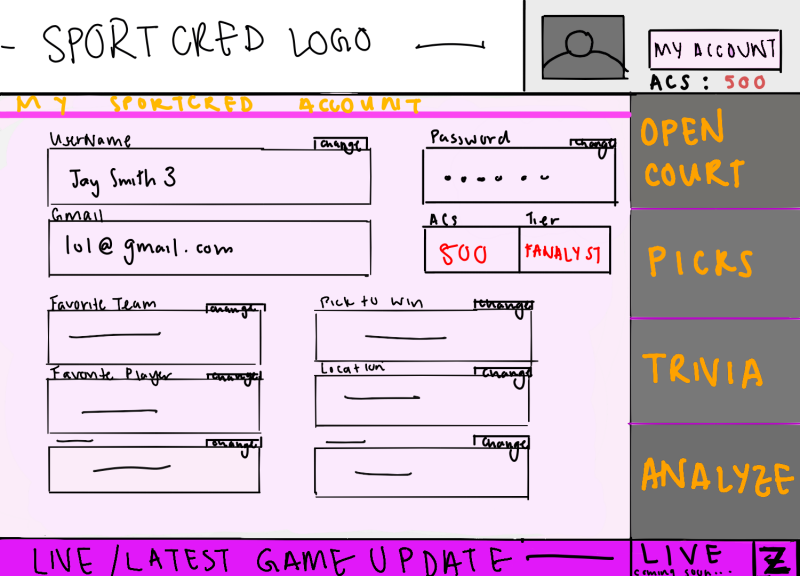 SPORTCRED LOGO
MY ACCOUNT
ACS : 500
MY SPORTCRED ACCOUNT
UserName
change
Jay Smith 3
Password
change
Gmail
lol@gmail.com
ACS
Tier
500
*ANALYST
Favorite Team
change
Pick to Win
change
Favorite Player
change
Location
change
change
change
OPEN
COURT
PICKS
TRIVIA
ANALYZE
LIVE/LATEST GAME UPDATE
LIVE
coming soon...
Z